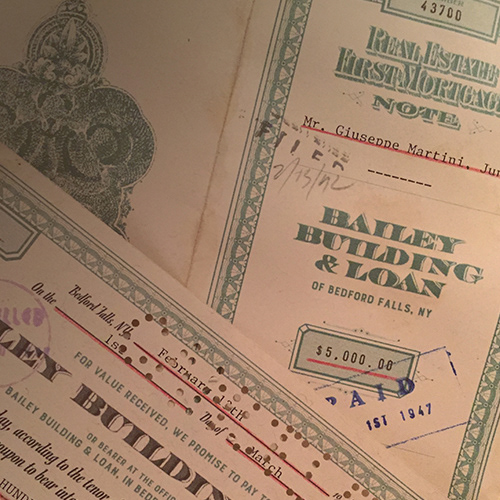 43700
REAL ESTATE
FIRST MORTGAG
NOTE
Mr. Giuseppe Martini, Jun
--------
FILED
2/15/92
BAILEY
BUILDING
& LOAN
OF BEDFORD FALLS, NY
$5,000.00
PAID
1ST 1947
Bedford Falls, N.Y.
On the 1st
February 12th
Day of March
LEY BUILDIN
FOR VALUE RECEIVED, WE PROMISE TO PAY TO
OR BEARER AT THE OFFIC
BAILEY BUILDING & LOAN, IN BEDF
lay, according to the tenor
coupon to bear inte
HUND